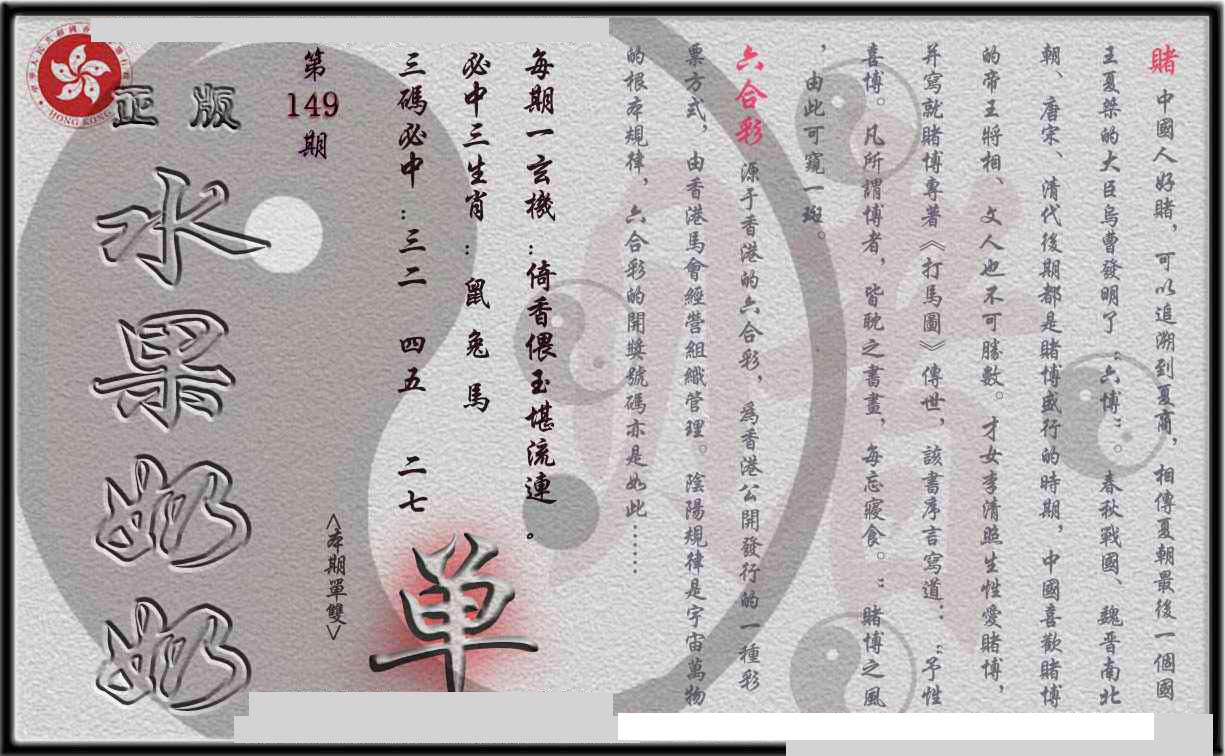 賭 中國人好賭，可以追溯到夏商，相傳夏朝最後一個國
王夏桀的大臣烏曹發明了“六博”。春秋戰國、魏晋南北
朝、唐宋、清代後期都是賭博盛行的時期，中國喜歡賭博
的帝王將相、文人也不可勝數。才女李清照生性愛賭博，
并寫就賭博專著《打馬圖》傳世，該書序言寫道：“予性
喜博。凡所謂博者，皆耽之書畫，每忘寢食。”賭博之風
，由此可窺一斑。
六合彩 源于香港的六合彩，爲香港公開發行的一種彩
票方式，由香港馬會經營組織管理。陰陽規律是宇宙萬物
的根本規律，六合彩的開獎號碼亦是如此……
每期一玄機：倚香偎玉堪流連。
必中三生肖：鼠 兔 馬
三碼必中：三二 四五 二七
單
<本期單雙>
第149期
正版
水果奶奶
HONG KONG